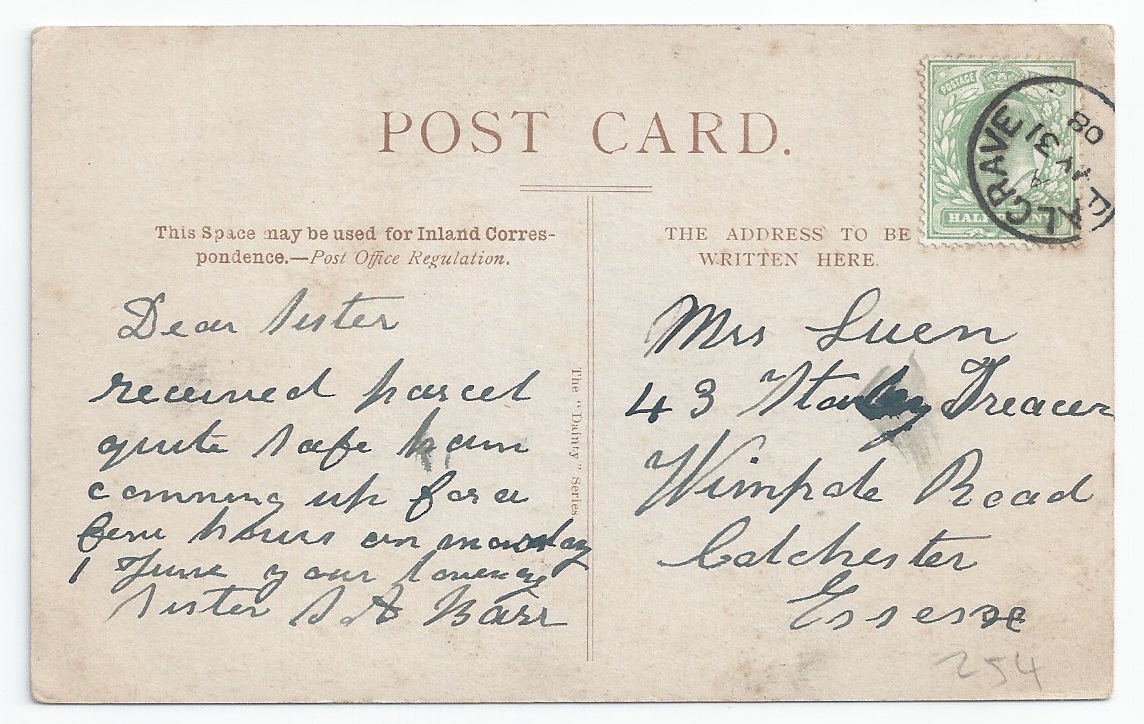 POST CARD.
This Space may be used for Inland Corres-
pondence.—Post Office Regulation.
THE ADDRESS TO BE
WRITTEN HERE.
POSTAGE
HALF NNY
ALGRAVE
MY 31
08
The "Dainty" Series
Dear Sister
received parcel
quite safe
comning up for a
few hours on monday
1 June your loveng
Sister S A Barr
Mrs Luen
43 Stanley Treacer
Wimpole Road
Colchester
Essex
254